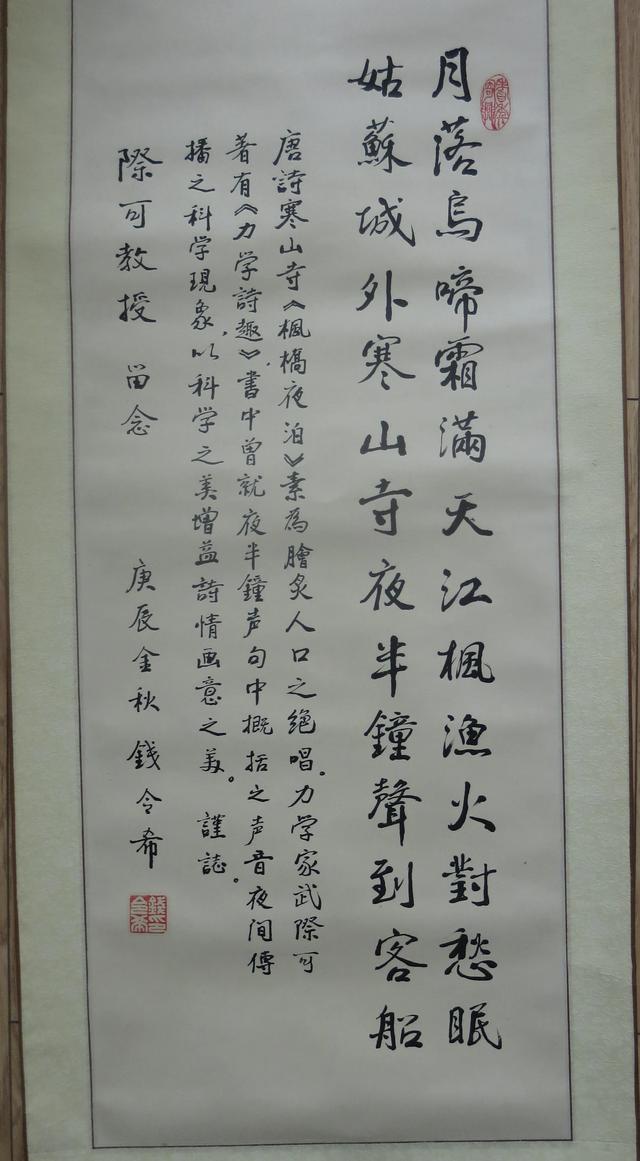 月落烏啼霜滿天江楓漁火對愁眠
姑蘇城外寒山寺夜半鐘聲到客船
唐詩寒山寺《楓橋夜泊》素為膾炙人口之絕唱。力学家武際可
著有《力学詩趣》,書中曾就夜半鐘声句中概括之声音夜间傳
播之科学現象,以科学之美增益詩情画意之美。謹誌。
際可教授 留念
庚辰金秋 錢令希
錢令希印